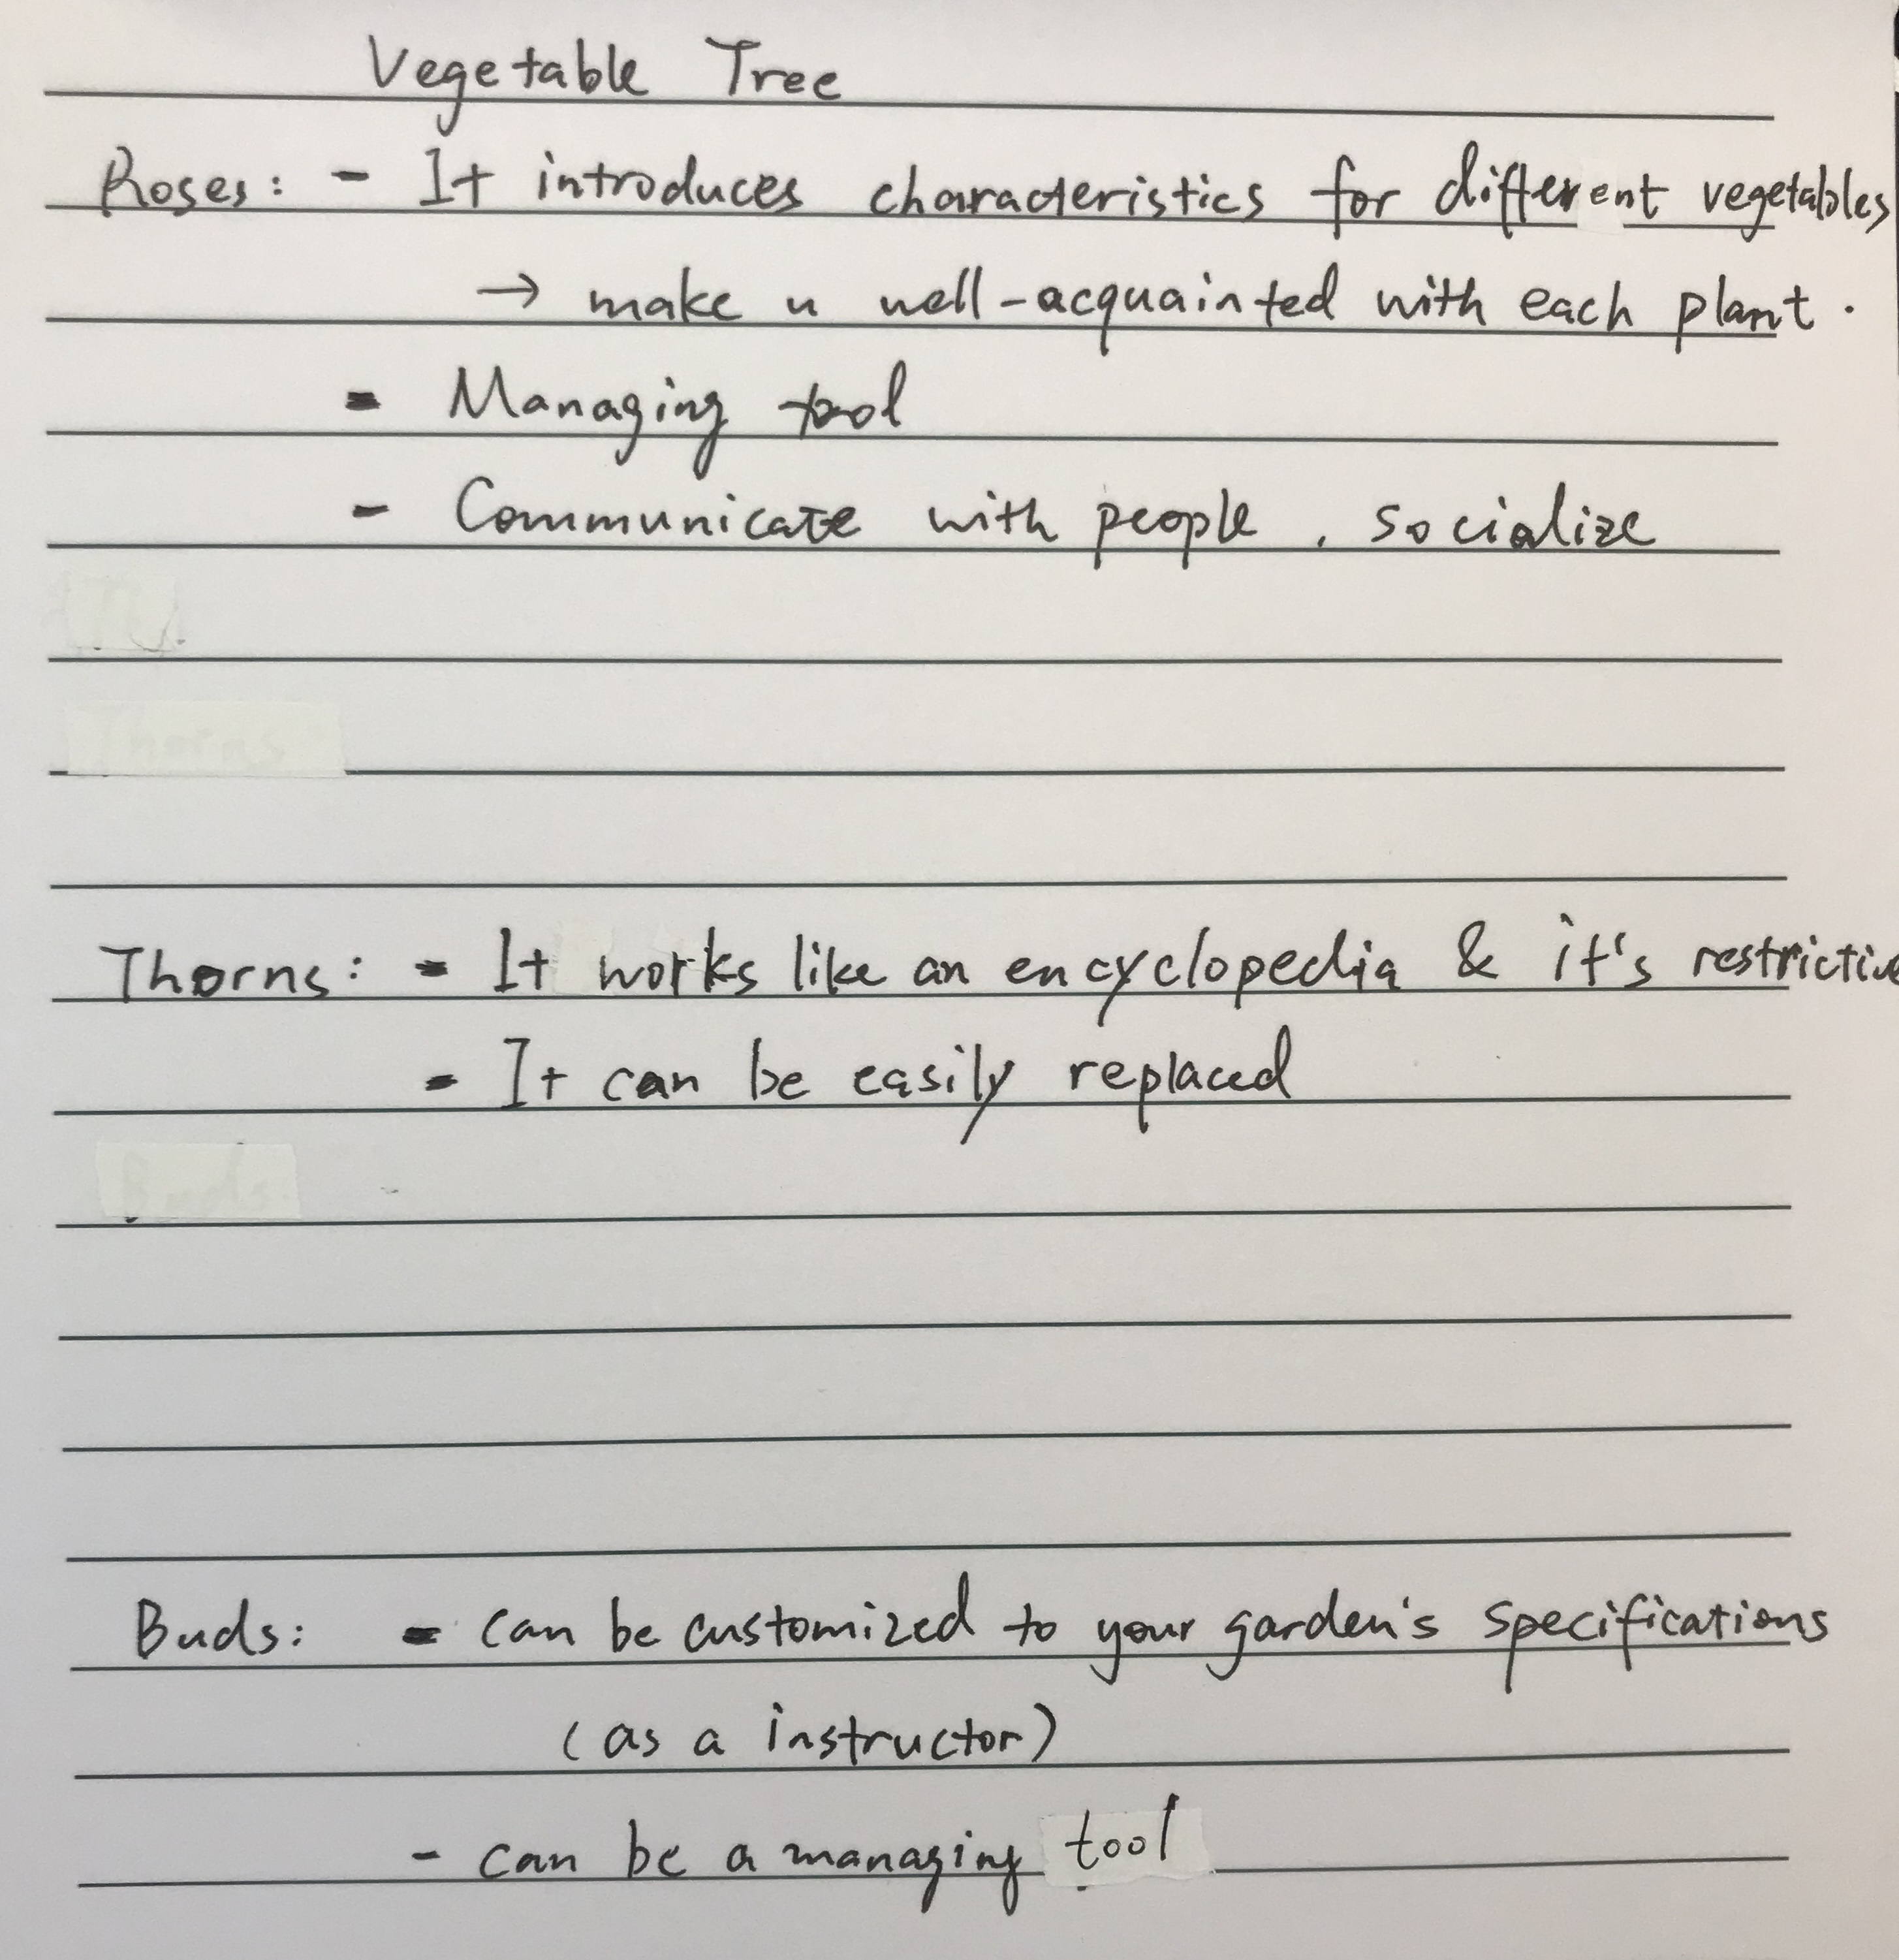 Vegetable Tree
Roses: - It introduces characteristics for different vegetables
→ make u well-acquainted with each plant.
- Managing tool
- Communicate with people, socialize
Thorns
Thorns: - It works like an encyclopedia & it's restrictive
- It can be easily replaced
Buds
Buds: - can be customized to your garden's specifications
(as a instructor)
- can be a managing tool